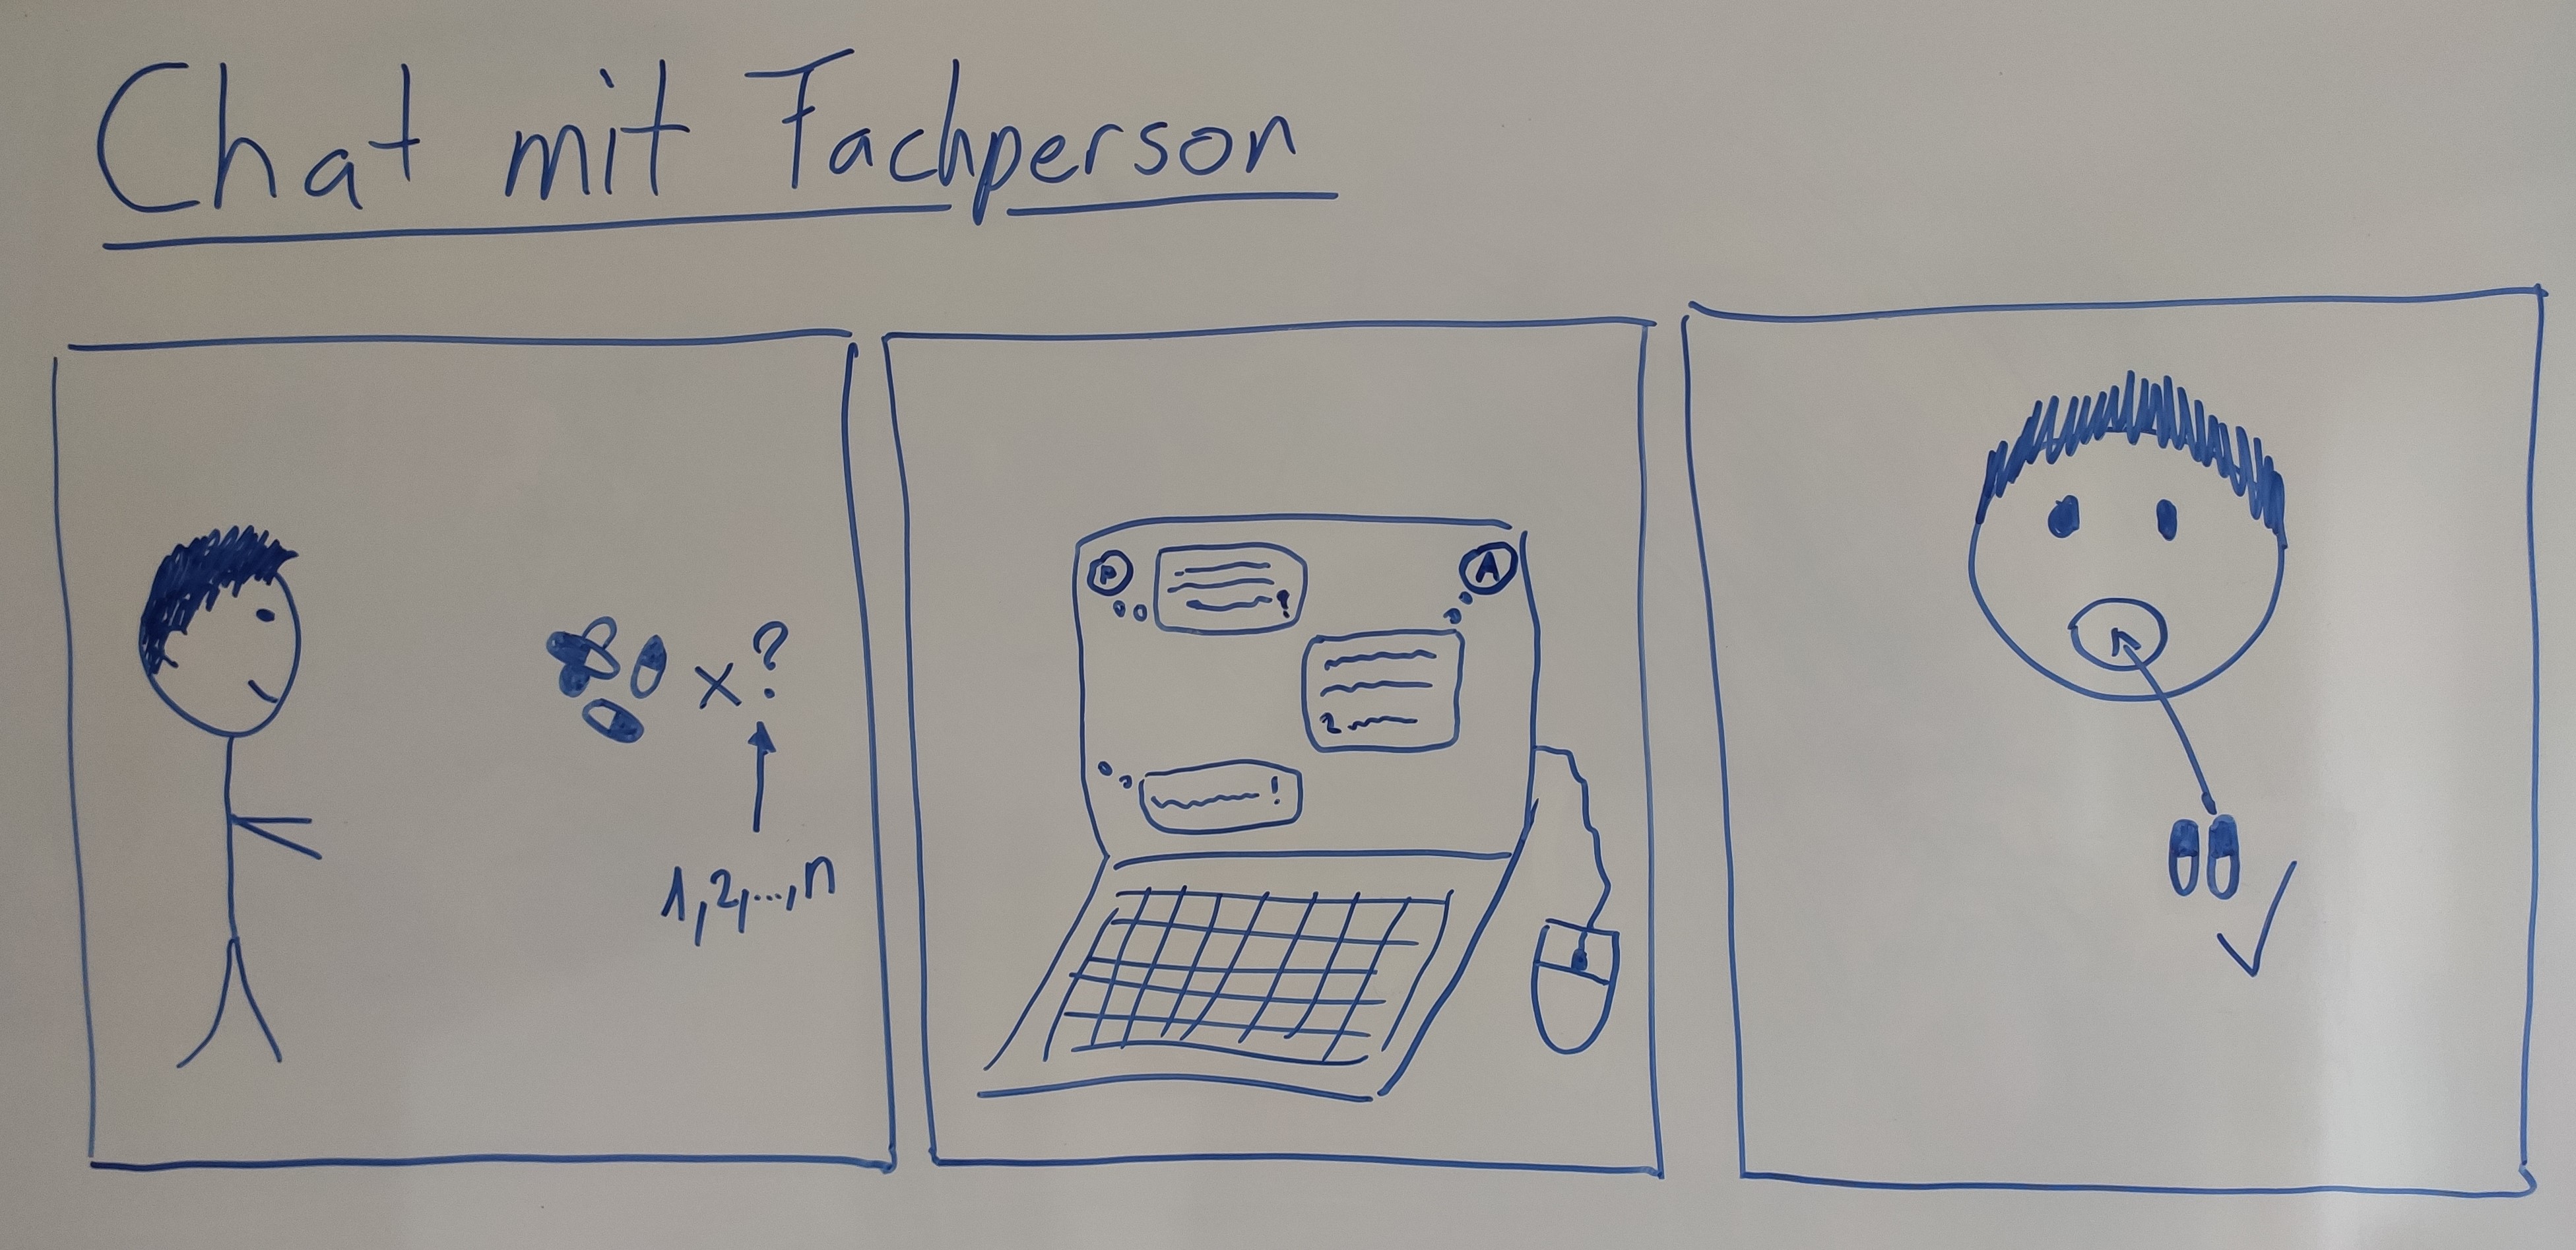 Chat mit Fachperson
x ?
1, 2, ..., n
P
?
A
2
!